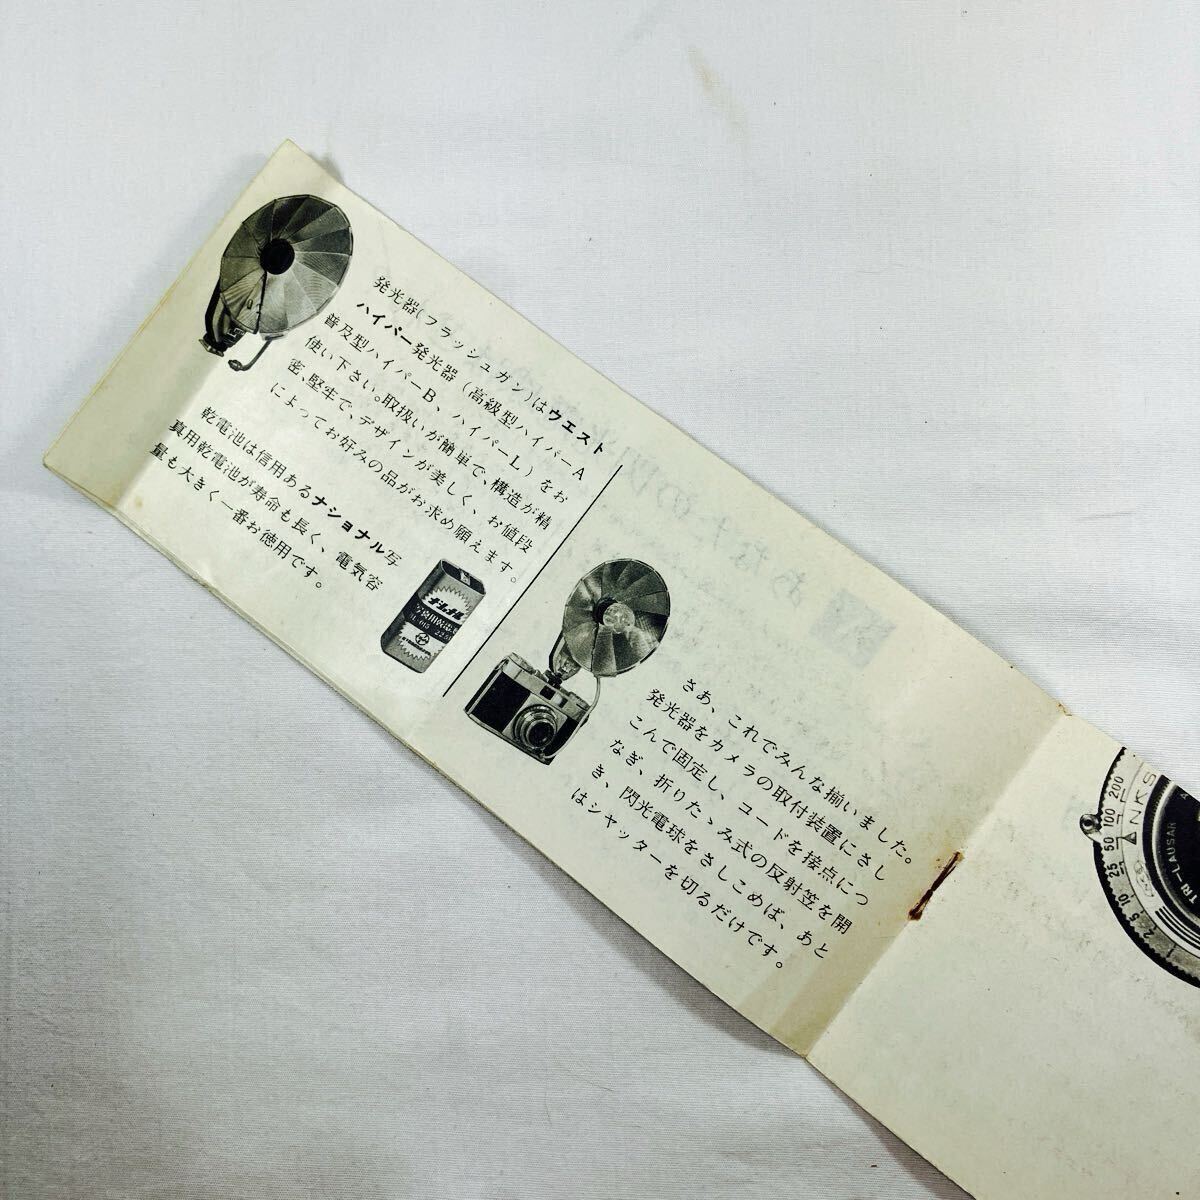 発光器(フラッシュガン)はウエスト
ハイパー発光器(高級型ハイパーA
普及型ハイパーB、ハイパーL)をお
使い下さい。取扱いが簡単で、構造が精
密、堅牢で、デザインが美しく、お値段
によってお好みの品がお求め願えます。
乾電池は信用あるナショナル写
真用乾電池が寿命も長く、電気容
量も大きく一番お徳用です。
ナショナル
さあ、これでみんな揃いました。
発光器をカメラの取付装置にさし
こんで固定し、コードを接点につ
なぎ、折りたゝみ式の反射笠を開
き、閃光電球をさしこめば、あと
はシャッターを切るだけです。
1 2 5 10 25 50 100 200
ANKS
TRI-LAUSAR